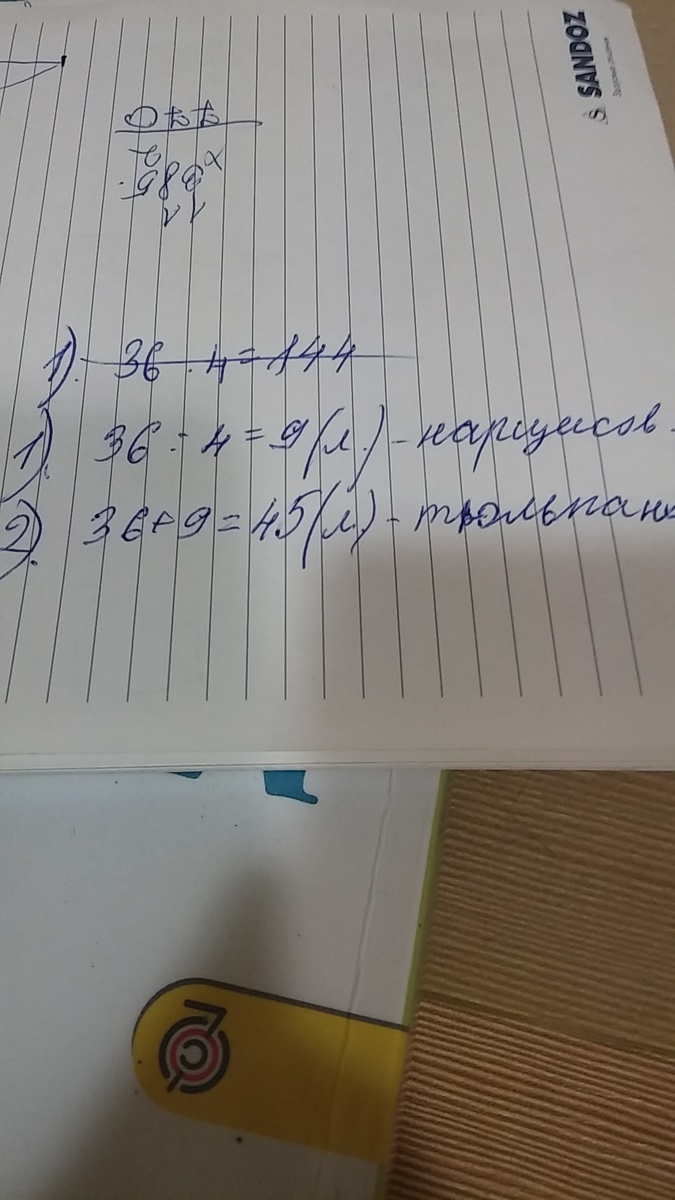 SANDOZ
385
2
770
1). 36 · 4 = 144
1). 36 : 4 = 9 (л.) - нарцисов.
2). 36 + 9 = 45 (л) - тюльпан